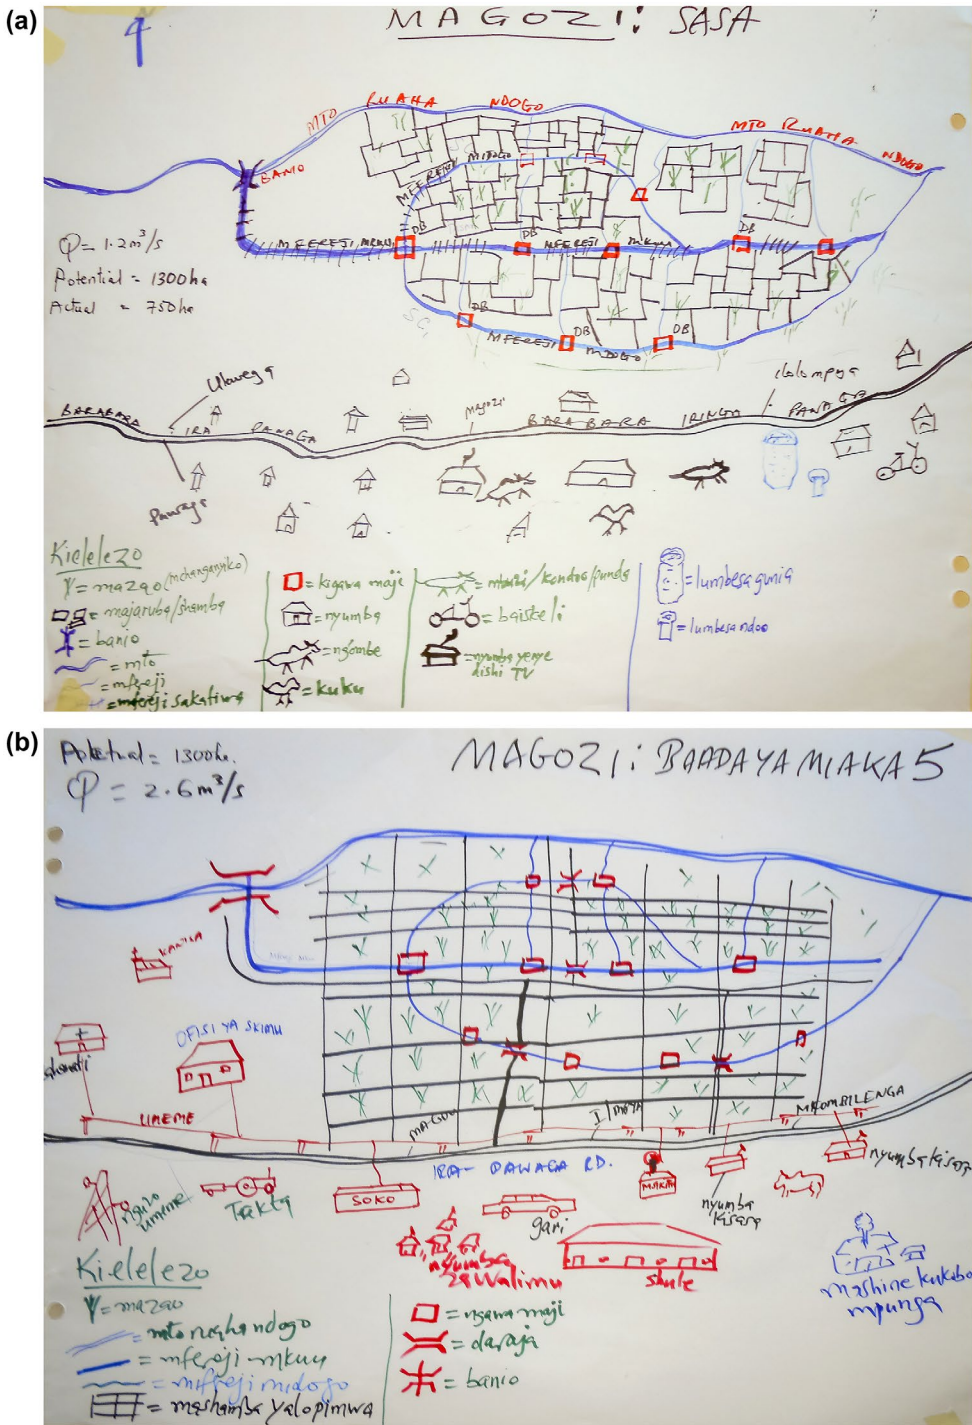 (a)
4
MAGOZI: SASA
MTO RUAHA NDOGO
MTO RUAHA NDOGO
BANIO
MFEREJI MDOGO
Q = 1.2 m³/s
Potential = 1300ha
Actual = 750ha
MFEREJI MKUU
DB
DB
MFEREJI
MKUU
DB
DB
DB
DB
MFEREJI MDOGO
Ukwega
BARABARA IRA PANAGA
Magozi
BARABARA IRINGA PANAGA
Ilolompya
Pawaga
Kielelezo
= mazao (mchanganyiko)
= majaruba/shamba
= banio
= mto
= mfereji
= mfereji sakatiwa
= kigawa maji
= nyumba
= ngombe
= kuku
= mbuzi/kondoo/punda
= baiskeli
= nyumba yenye
dishi TV
= lumbesa gunia
= lumbesa ndoo
(b)
Potential = 1300ha.
Q = 2.6 m³/s
MAGOZI: BAADA YA MIAKA 5
KANISA
OFISI YA SKIMU
UMEME
MAGOZI
MKOMBILENGA
IRA - PAWAGA RD.
nguzo
umeme
Takta
SOKO
gari
nyumba
kisasa
nyumba kisasa
nyumba
za walimu
shule
mashine kukoboa
mpunga
Kielelezo
= mazao
= mto ruaha ndogo
= mfereji mkuu
= mifreji midogo
= mashamba yalopimwa
= ngawa maji
= daraja
= banio